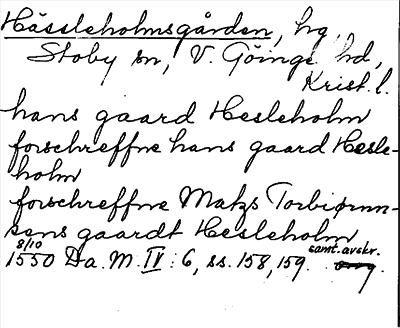 Hässleholmsgården, hrg,
Stoby sn, V. Göinge hd,
Krist. l.
hans gaard Hesleholm
forschreffne hans gaard Hesle-
holm
forschreffne Matzs Torbiørnn-
sens gaardt Hesleholm
8/10 samt. avskr.
1550 Da. M. IV: 6, ss. 158, 159.